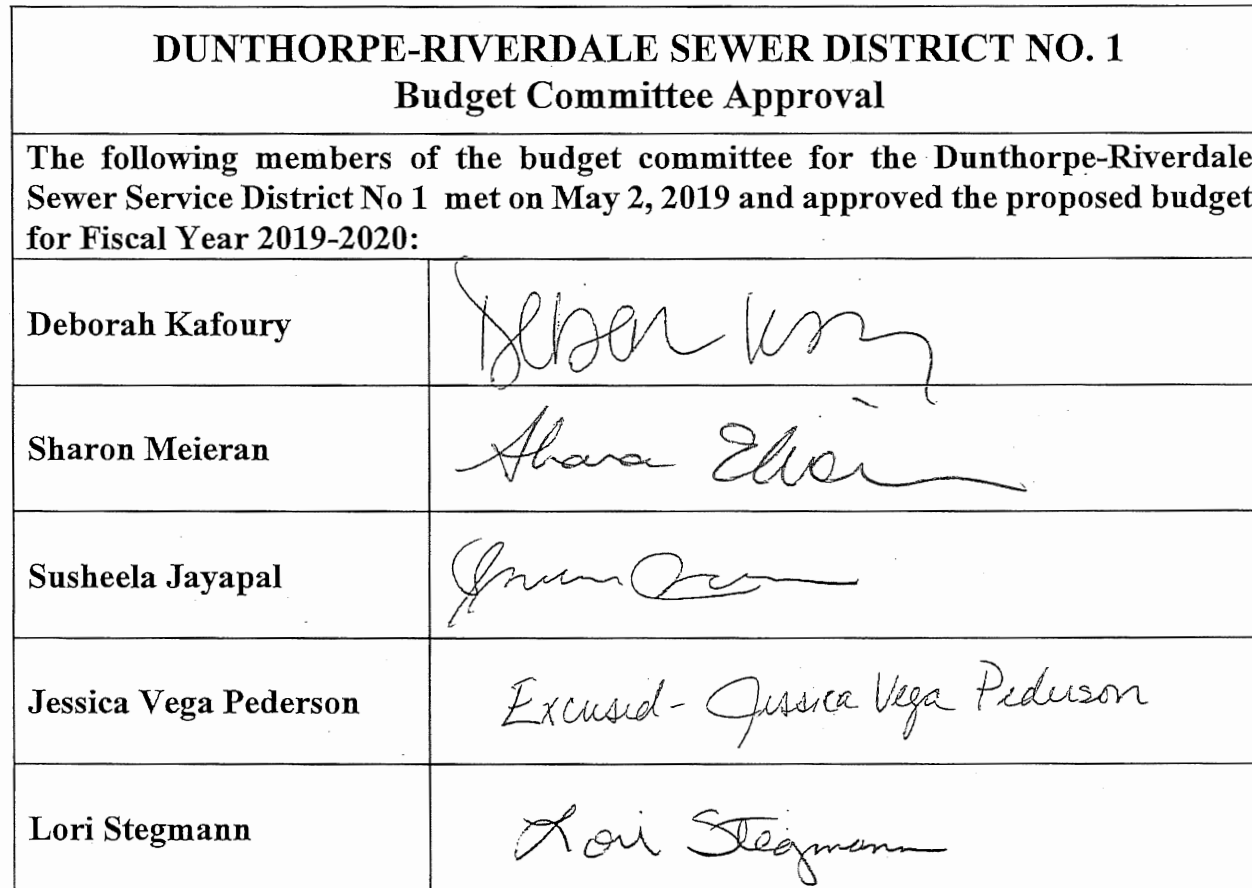 DUNTHORPE-RIVERDALE SEWER DISTRICT NO. 1
Budget Committee Approval
The following members of the budget committee for the Dunthorpe-Riverdale
Sewer Service District No 1 met on May 2, 2019 and approved the proposed budget
for Fiscal Year 2019-2020:
Deborah Kafoury
Sharon Meieran
Susheela Jayapal
Jessica Vega Pederson Excused- Jessica Vega Pederson
Lori Stegmann Lori Stegmann